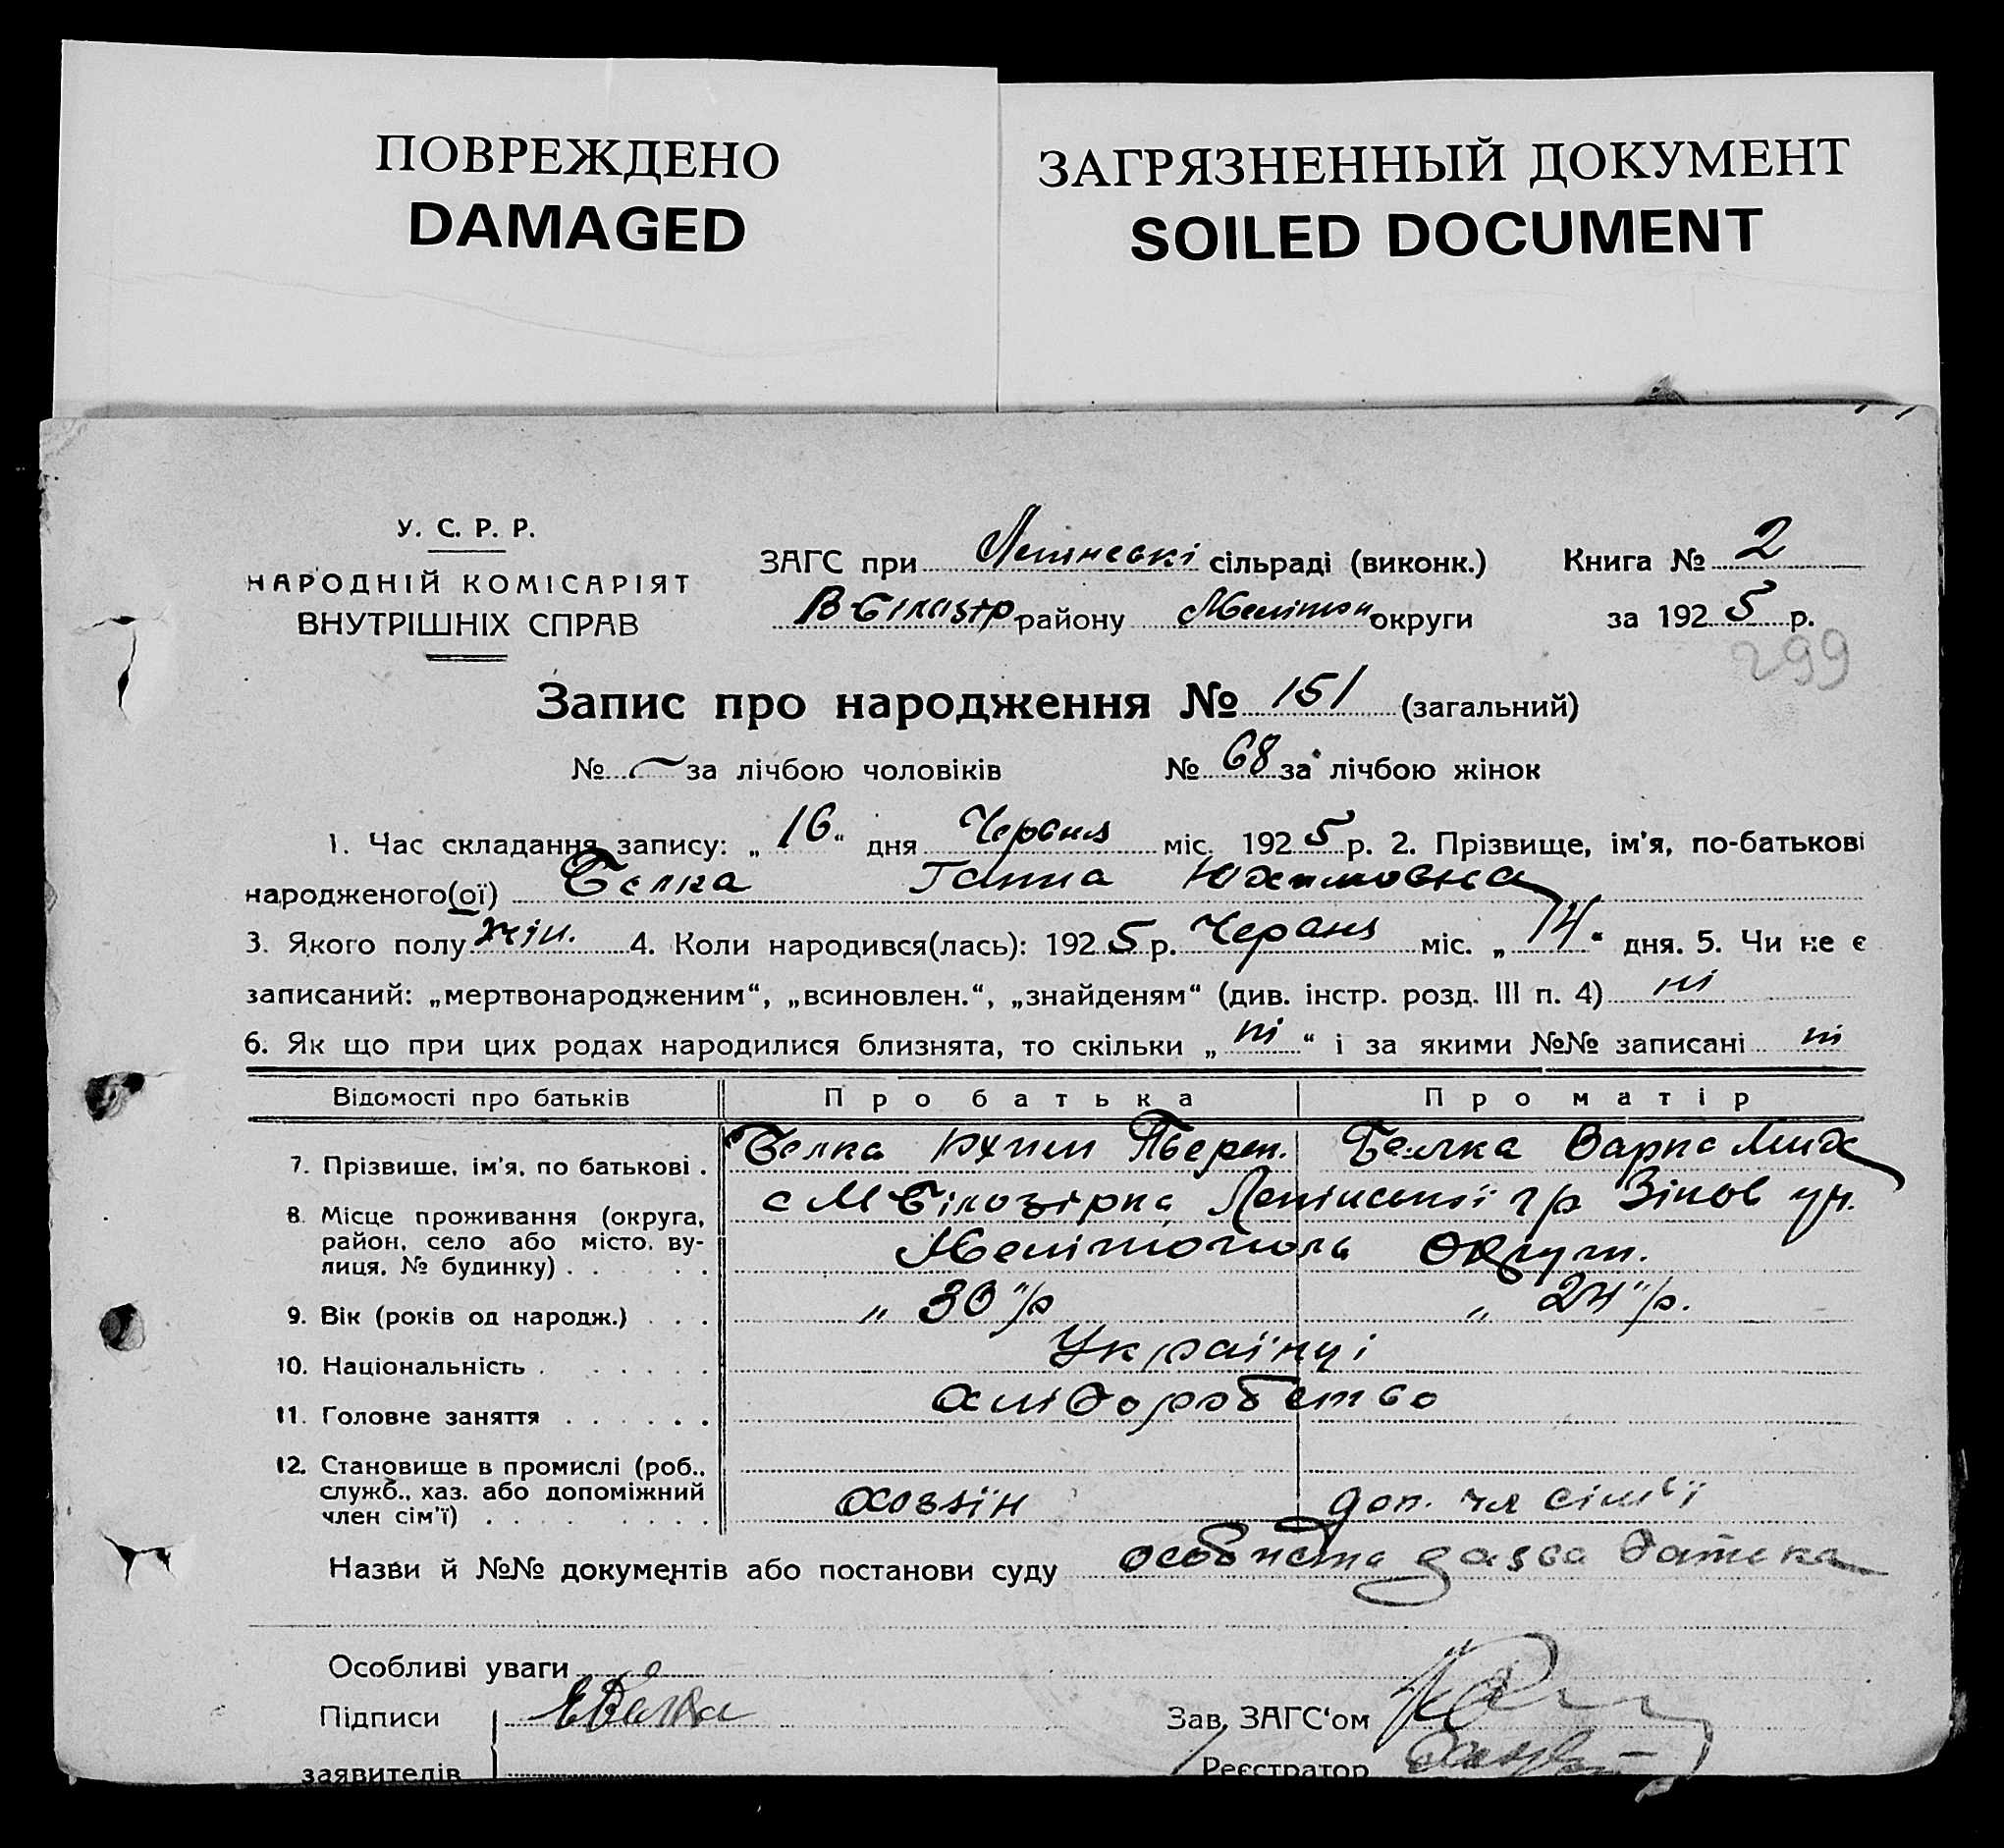 ПОВРЕЖДЕНО
DAMAGED
ЗАГРЯЗНЕННЫЙ ДОКУМЕНТ
SOILED DOCUMENT
У. С. Р. Р.
НАРОДНІЙ КОМІСАРІЯТ
ВНУТРІШНІХ СПРАВ
ЗАГС при сільраді (виконк.) Книга № 2
В Білозір району Мелітоп округи за 1925 р.
299
Запис про народження № 151 (загальний)
№ — за лічбою чоловіків № 68 за лічбою жінок
1. Час складання запису: „16“ дня Червня міс. 1925 р. 2. Прізвище, ім'я, по-батькові
народженого(ої) Белка Ганна Юхимовна
3. Якого полу жін. 4. Коли народився(лась): 1925 р. Червня міс. „14“ дня. 5. Чи не є
записаний: „мертвонародженим“, „всиновлен.“, „знайденям“ (див. інстр. розд. III п. 4) ні
6. Як що при цих родах народилися близнята, то скільки „ні“ і за якими №№ записані ні
Відомості про батьків Про батька Про матір
7. Прізвище, ім'я, по батькові . Белка Юхим Белка Варка Мих
8. Місце проживання (округа, с М Білозірка Ленінської гр
район, село або місто, ву- Мелітополь Округи.
лиця, № будинку) . . . . . .
9. Вік (років од народж.) . . . „ 30 "/р „ 24 "/р.
10. Національність . . . . . . . Українці
11. Головне заняття . . . . . . хліборобство
12. Становище в промислі (роб.,
служб., хаз. або допоміжний хозяїн доп. чл сім'ї
член сім'ї) . . . . . . . . .
Назви й №№ документів або постанови суду особиста заява батька
Особливі уваги
Підписи ЕБелка Зав. ЗАГС'ом
заявителів Реєстратор